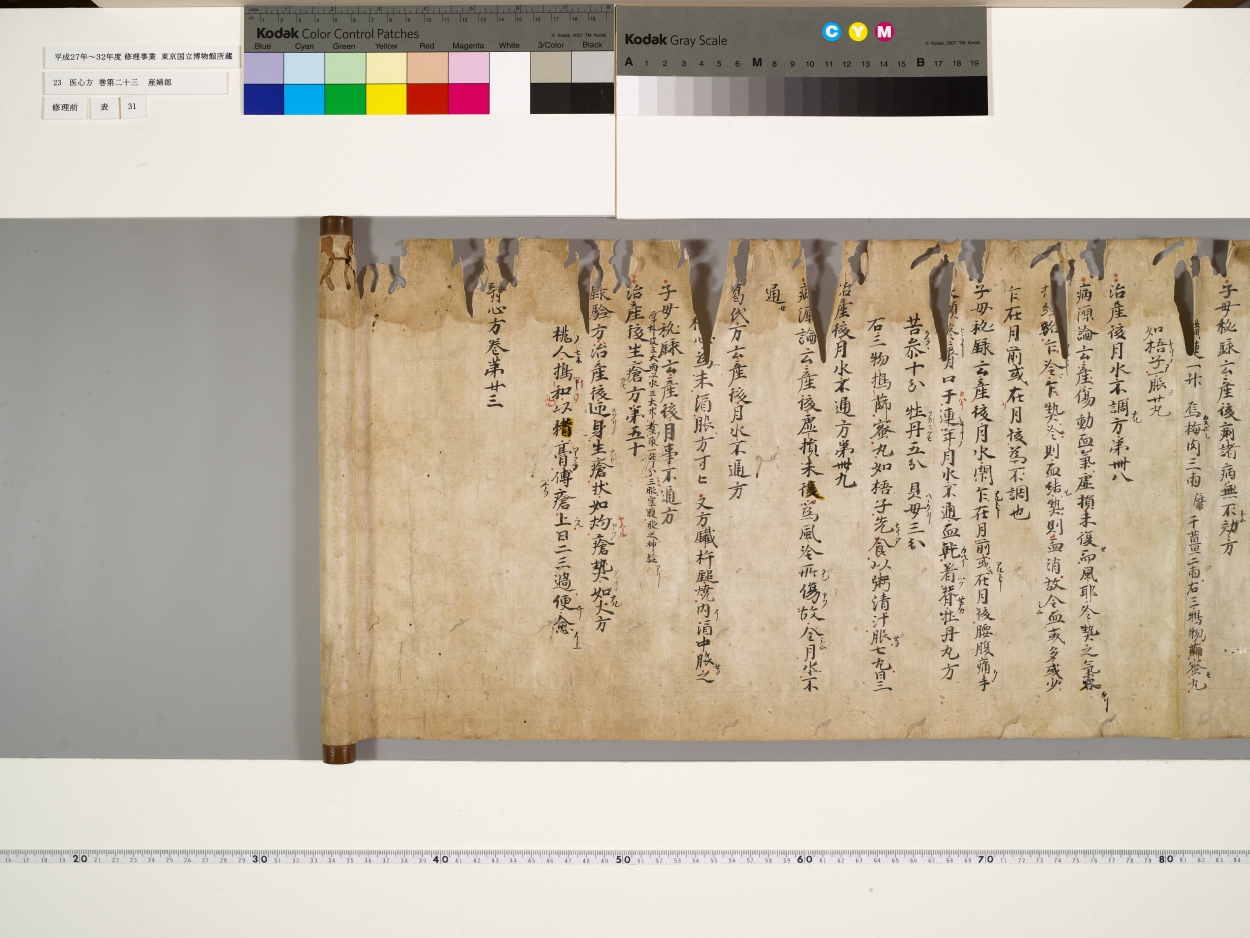 平成27年～32年度 修理事業 東京国立博物館所蔵
23 医心方 巻第二十三 産婦部
修理前 表 31
Kodak Color Control Patches
Blue Cyan Green Yellow Red Magenta White 3/Color Black
Kodak Gray Scale
C Y M
A 1 2 3 4 5 6 M 8 9 10 11 12 13 14 15 B 17 18 19
子母秘録云産後痢諸病無不効方
黄連一升 烏梅肉三兩 干薑二兩右三物篩蜜丸
如梧子服廿丸
治産後月水不調方第卌八
病源論云産傷動血氣虚損未復而風耶冷熱之氣客
経絡乍冷乍熱冷則血結熱則血消故令血或多或少
乍在月前或在月後為不調也
子母秘録云産後月水閞乍在月前或在月後腰腹痛手
口干連年月水不通血乾着脊牡丹丸方
苦参十分 牡丹五分 貝母三分
右三物搗篩蜜丸如梧子先食以粥清汁服七丸日三
治産後月水不通方第卌九
病源論云産後虚損未復為風冷所傷故令月水不
通
葛氏方云産後月水不通方
桂心為末酒服方寸匕 又方鐵杵鎚焼内酒中服之
子母秘録云産後月事不通方
治産後生瘡方第五十
録験方治産後遍身生瘡状如灼瘡熱如火方
桃人搗和以猪膏傅瘡上日二三過便愈
醫心方巻第廿三
20 30 40 50 60 70 80